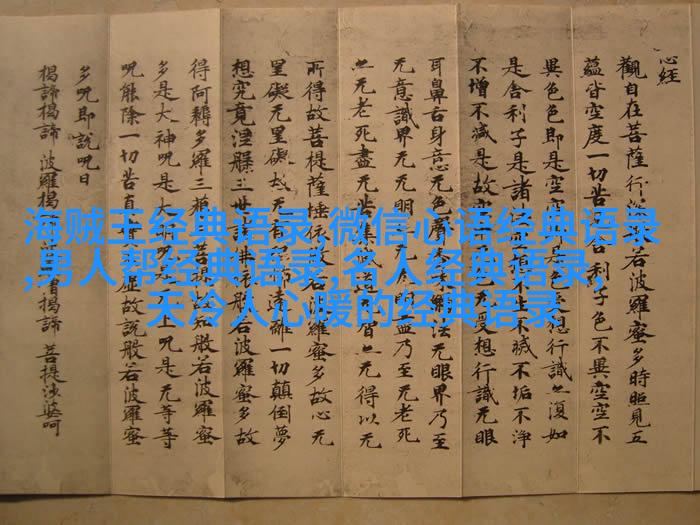 心经
觀自在菩薩行若波羅蜜多時照見五
蘊皆空度一切苦舍利子色不異空空不
異色色即是空空是色想行識亦復如
是舍利子是諸不生不滅不垢不淨
不增不減是故空无受想行識无眼
耳鼻舌身意无色聲法无眼界乃至
无意識界无无明无盡乃至无老死
亦无老死盡无苦集无得以无
所得故菩提薩埵依若羅蜜多故心无
罣礙无罣礙故无有遠離一切顛倒夢
想究竟涅槃三世諸依般若波羅蜜多故
得阿耨多羅三藐菩提故知般若波羅蜜
多是大神呪是大上呪是无等等
呪能除一切苦真虛故說般若波羅蜜
多呪即說呪曰
揭諦揭諦 波羅揭 僧揭諦 菩提娑婆呵
海贼王经典语录,微信心语经典语录
,男人帮经典语录,名人经典语录,
天冷人心暖的经典语录